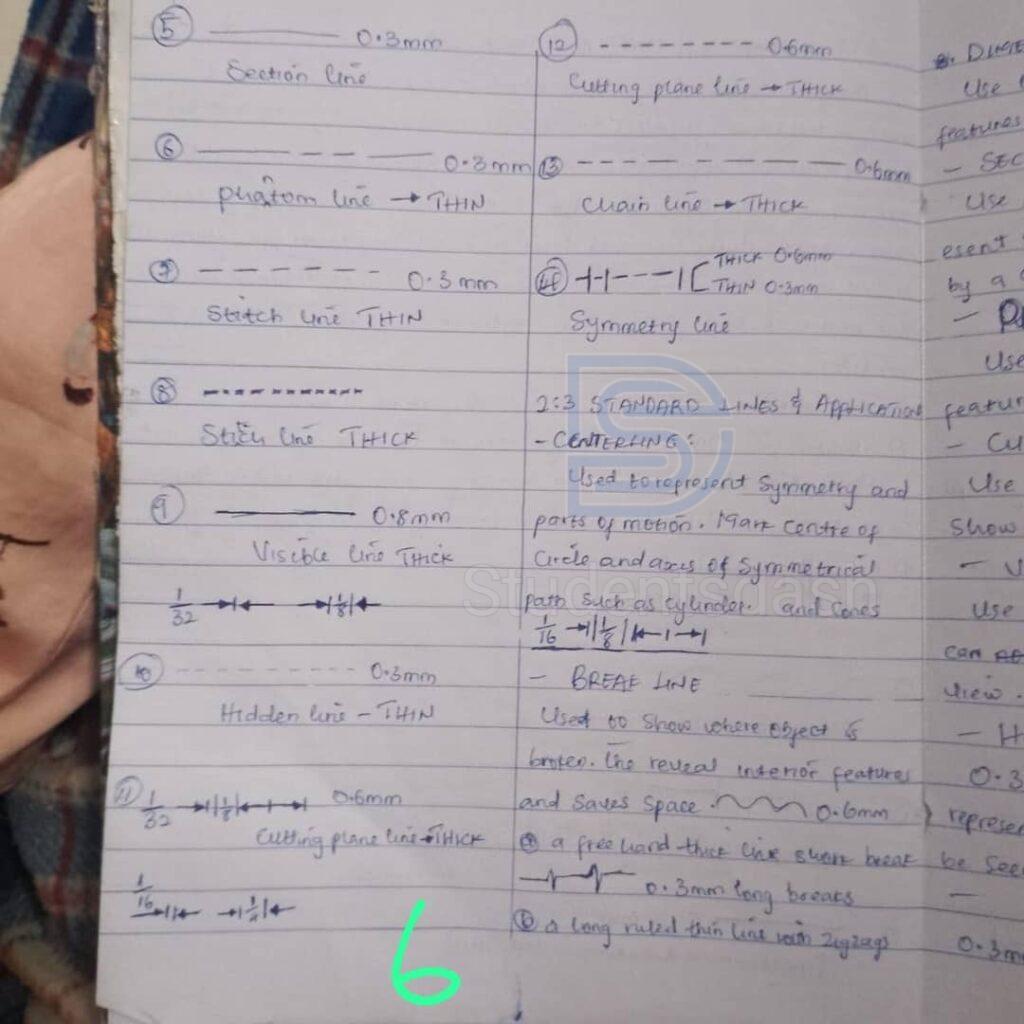 5 0.3mm
Section line
6 0.3mm
phatom line → THIN
7 0.3mm
Stitch line THIN
8
Stich line THICK
9 0.8mm
Visible line THICK
1/32 1/8
10 0.3mm
Hidden line - THIN
11 1/32 1/8 0.6mm
Cutting plane line → THICK
1/16 1/4
6
12 0.6mm
Cutting plane line → THICK
13 0.6mm
Chain line → THICK
14 THICK 0.6mm
THIN 0.3mm
Symmetry line
2:3 STANDARD LINES & APPLICATION
- CENTERLINE:
Used to represent Symmetry and
parts of motion. Mark centre of
Circle and axes of Symmetrical
path such as cylinder. and Cones
1/16 1/8
- BREAK LINE
Used to show where object is
broken. The reveal interior features
and saves space. 0.6mm
a a freehand thick line short break
0.3mm long breaks
b a long ruled thin line with zigzags
Use
features
- SEC
Use
esent
by a
Use
featur
- Cu
Use
Show
- V
Use
can
View.
- H
0.3
represen
be See
-
0.3m
Studentsdash